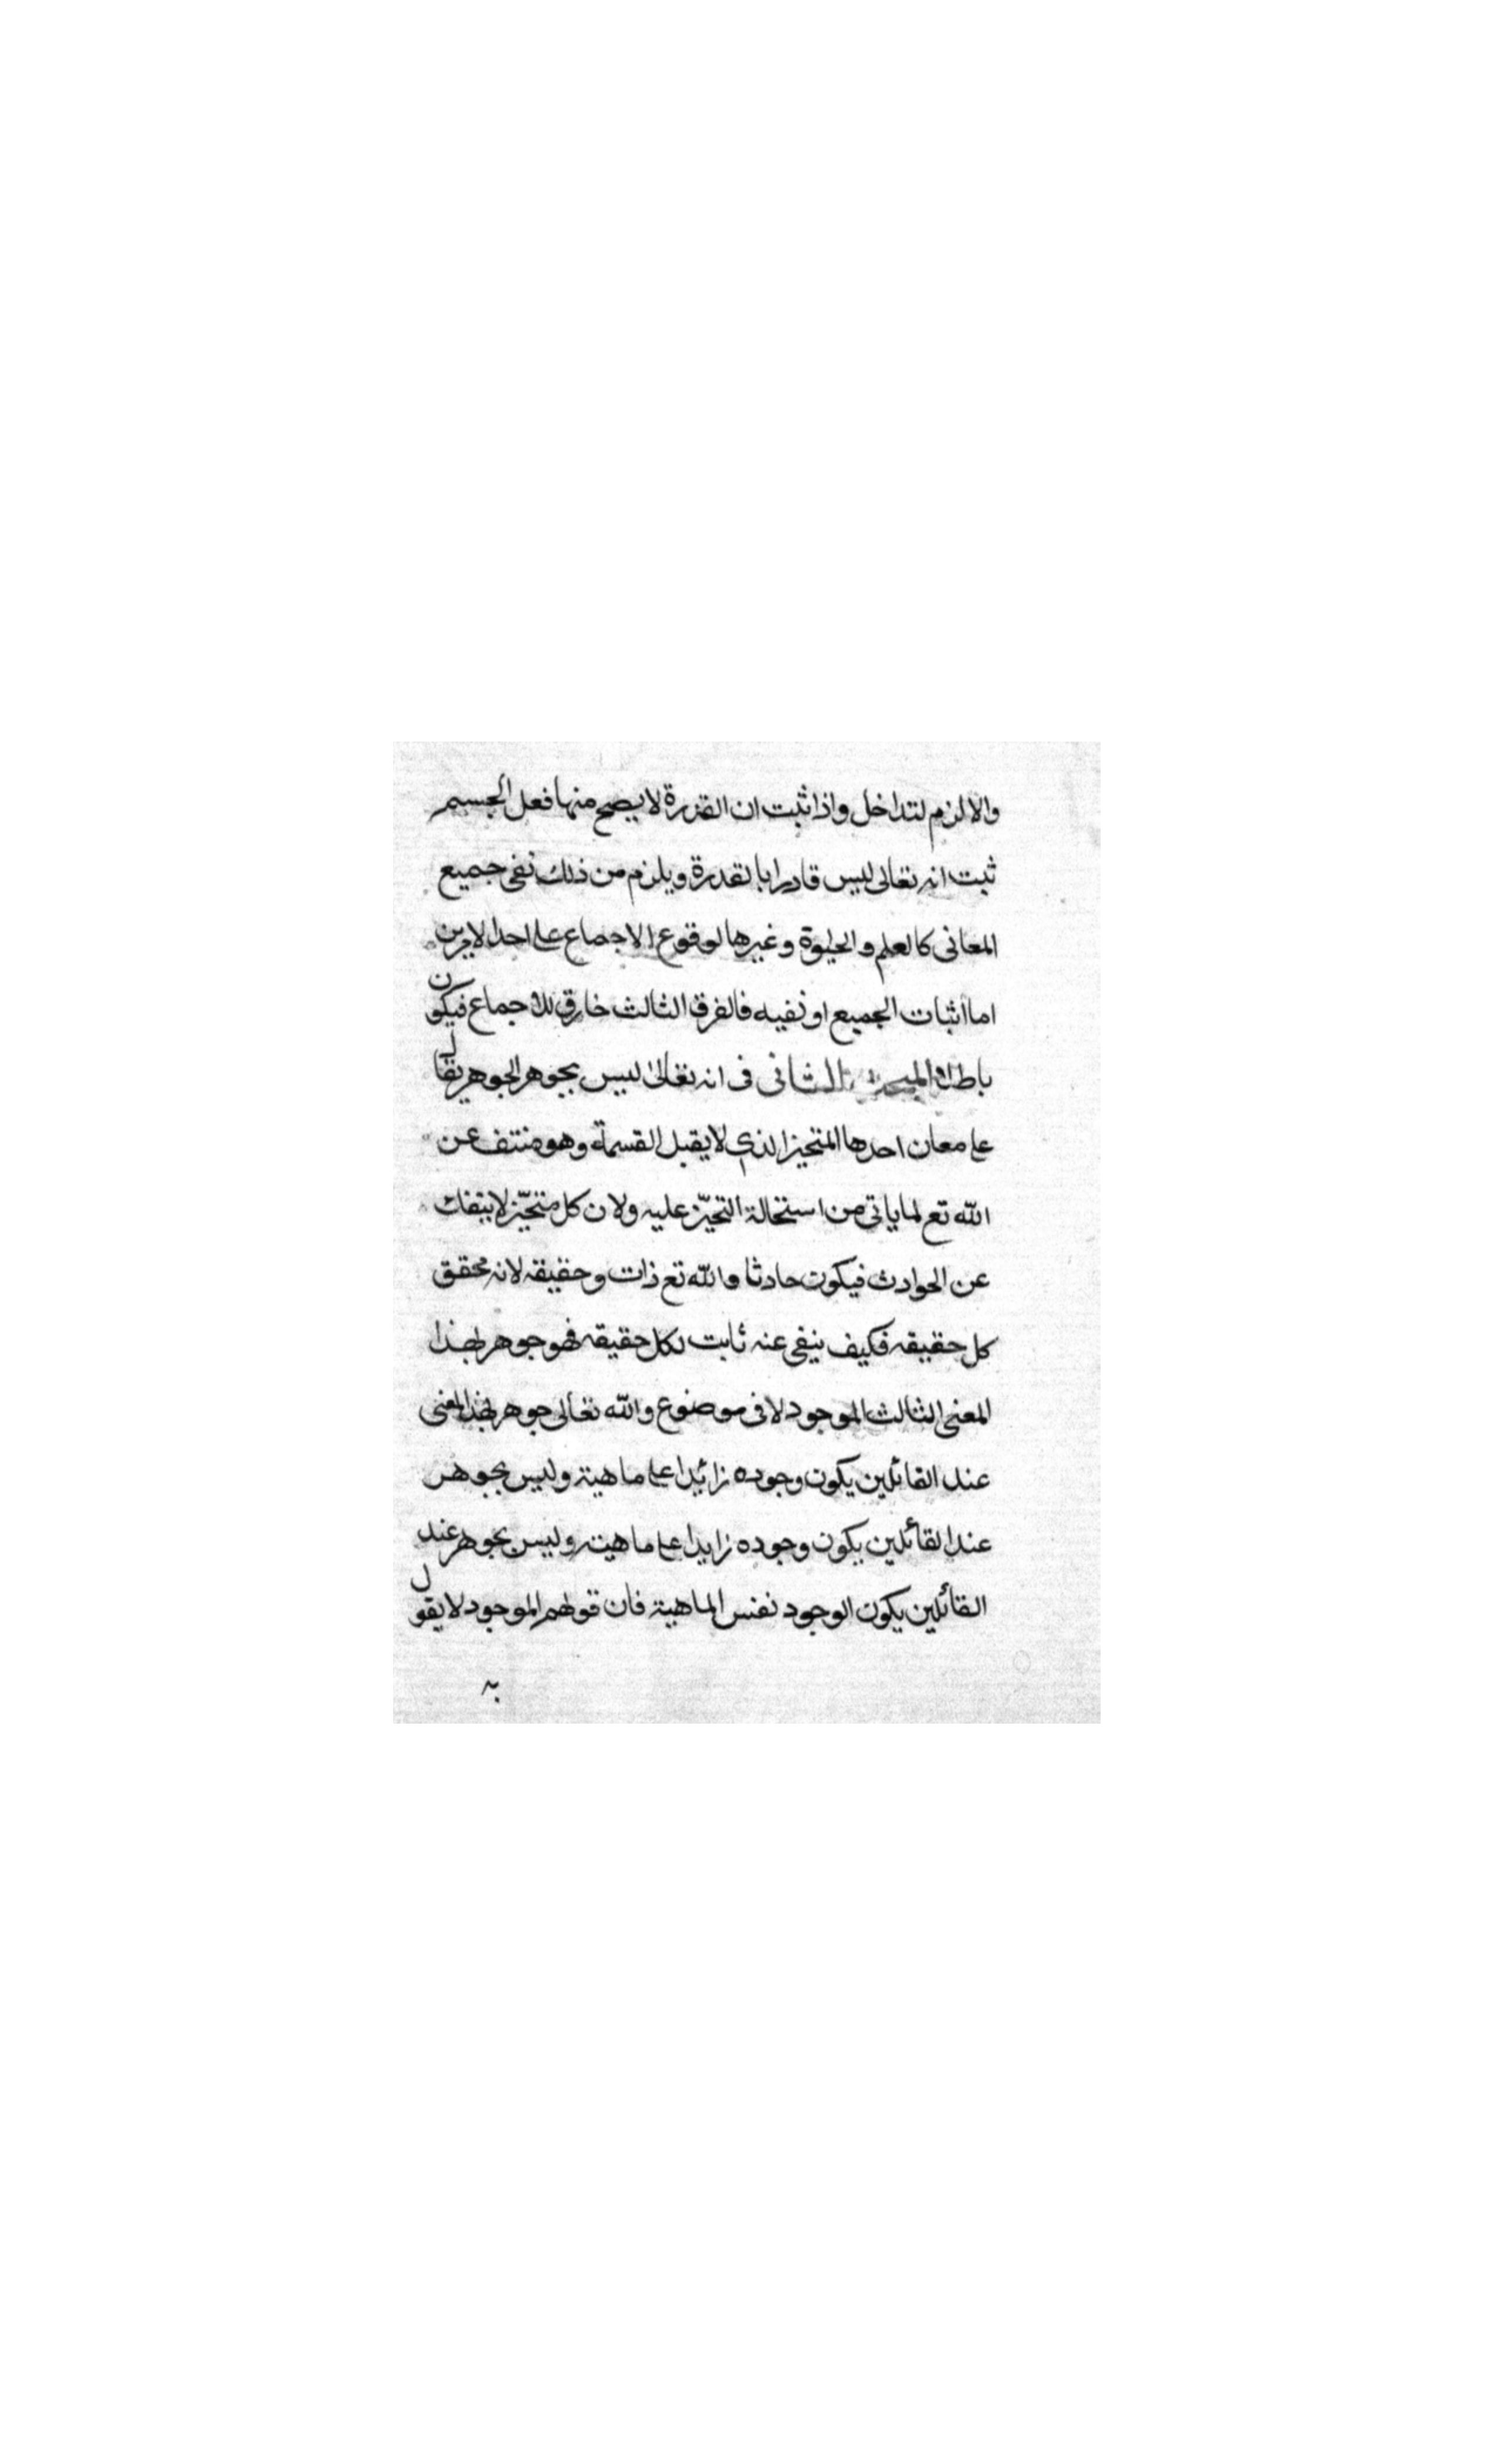 والا لزم لتداخل واذا ثبت ان القدرة لا يصح منها فعل الجسم
ثبت انه تعالى ليس قادرا بالقدرة ويلزم من ذلك نفى جميع
المعانى كالعلم والحيوة وغيرها لوقوع الاجماع على احد الامرين
اما اثبات الجميع او نفيه فالفرق الثالث خارق للاجماع فيكون
باطلا المبحث الثانى فى انه تعالى ليس بجوهر الجوهر يقال
على معان احدها المتحيز الذى لا يقبل القسمة وهو منتف عن
الله تع لما ياتى من استحالة التحيّز عليه ولان كل متحيّز لا ينفك
عن الحوادث فيكون حادثا والله تع ذات وحقيقه لانه محقق
كل حقيقه فكيف ينفى عنه ثابت لكل حقيقه فهو جوهر لهذا
المعنى الثالث الموجود لا فى موضوع والله تعالى جوهر لهذا المعنى
عند القائلين يكون وجوده زائدا على ماهيته وليس بجوهر
عند القائلين يكون وجوده زايدا على ماهيته وليس بجوهر عند
القائلين يكون الوجود نفس الماهية فان قولهم الموجود لا يقول
به